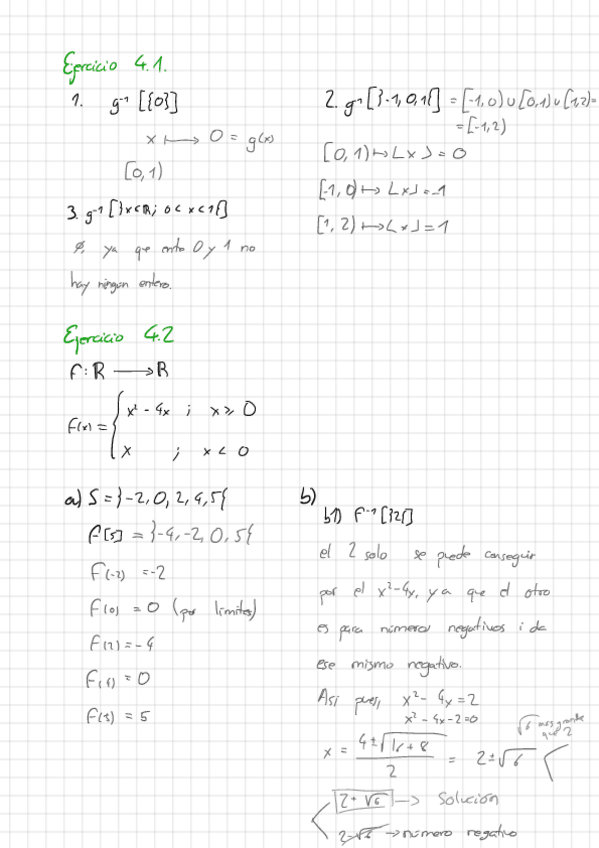 Ejercicio 4.1.
1. g⁻¹ [{0}]
x ⟼ 0 = g(x)
[0,1)
2. g⁻¹ [}-1,0,1{] = [-1,0) ∪ [0,1) ∪ [1,2) =
= [-1,2)
[0,1) ↦ ⌊x⌋ = 0
[-1,0) ↦ ⌊x⌋ = -1
[1,2) ↦ ⌊x⌋ = 1
3. g⁻¹ [}x∈R; 0 < x < 1{]
∅, ya que entre 0 y 1 no
hay ningun entero.
Ejercicio 4.2
f: R ⟶ R
f(x) = { x² - 4x ; x ≥ 0
x ; x < 0
a) S = }-2, 0, 2, 4, 5{
f[S] = }-4, -2, 0, 5{
f(-2) = -2
f(0) = 0 (por límites)
f(2) = -4
f(4) = 0
f(5) = 5
b)
b1) f⁻¹ [}2{]
el 2 solo se puede conseguir
por el x²-4x, ya que el otro
es para números negativos i da
ese mismo negativo.
Asi pues, x² - 4x = 2
x² - 4x - 2 = 0
x = (4 ± √(16 + 8)) / 2 = 2 ± √6
√6 mas grande
que 2
2 + √6 → Solución
2 - √6 → número negativo